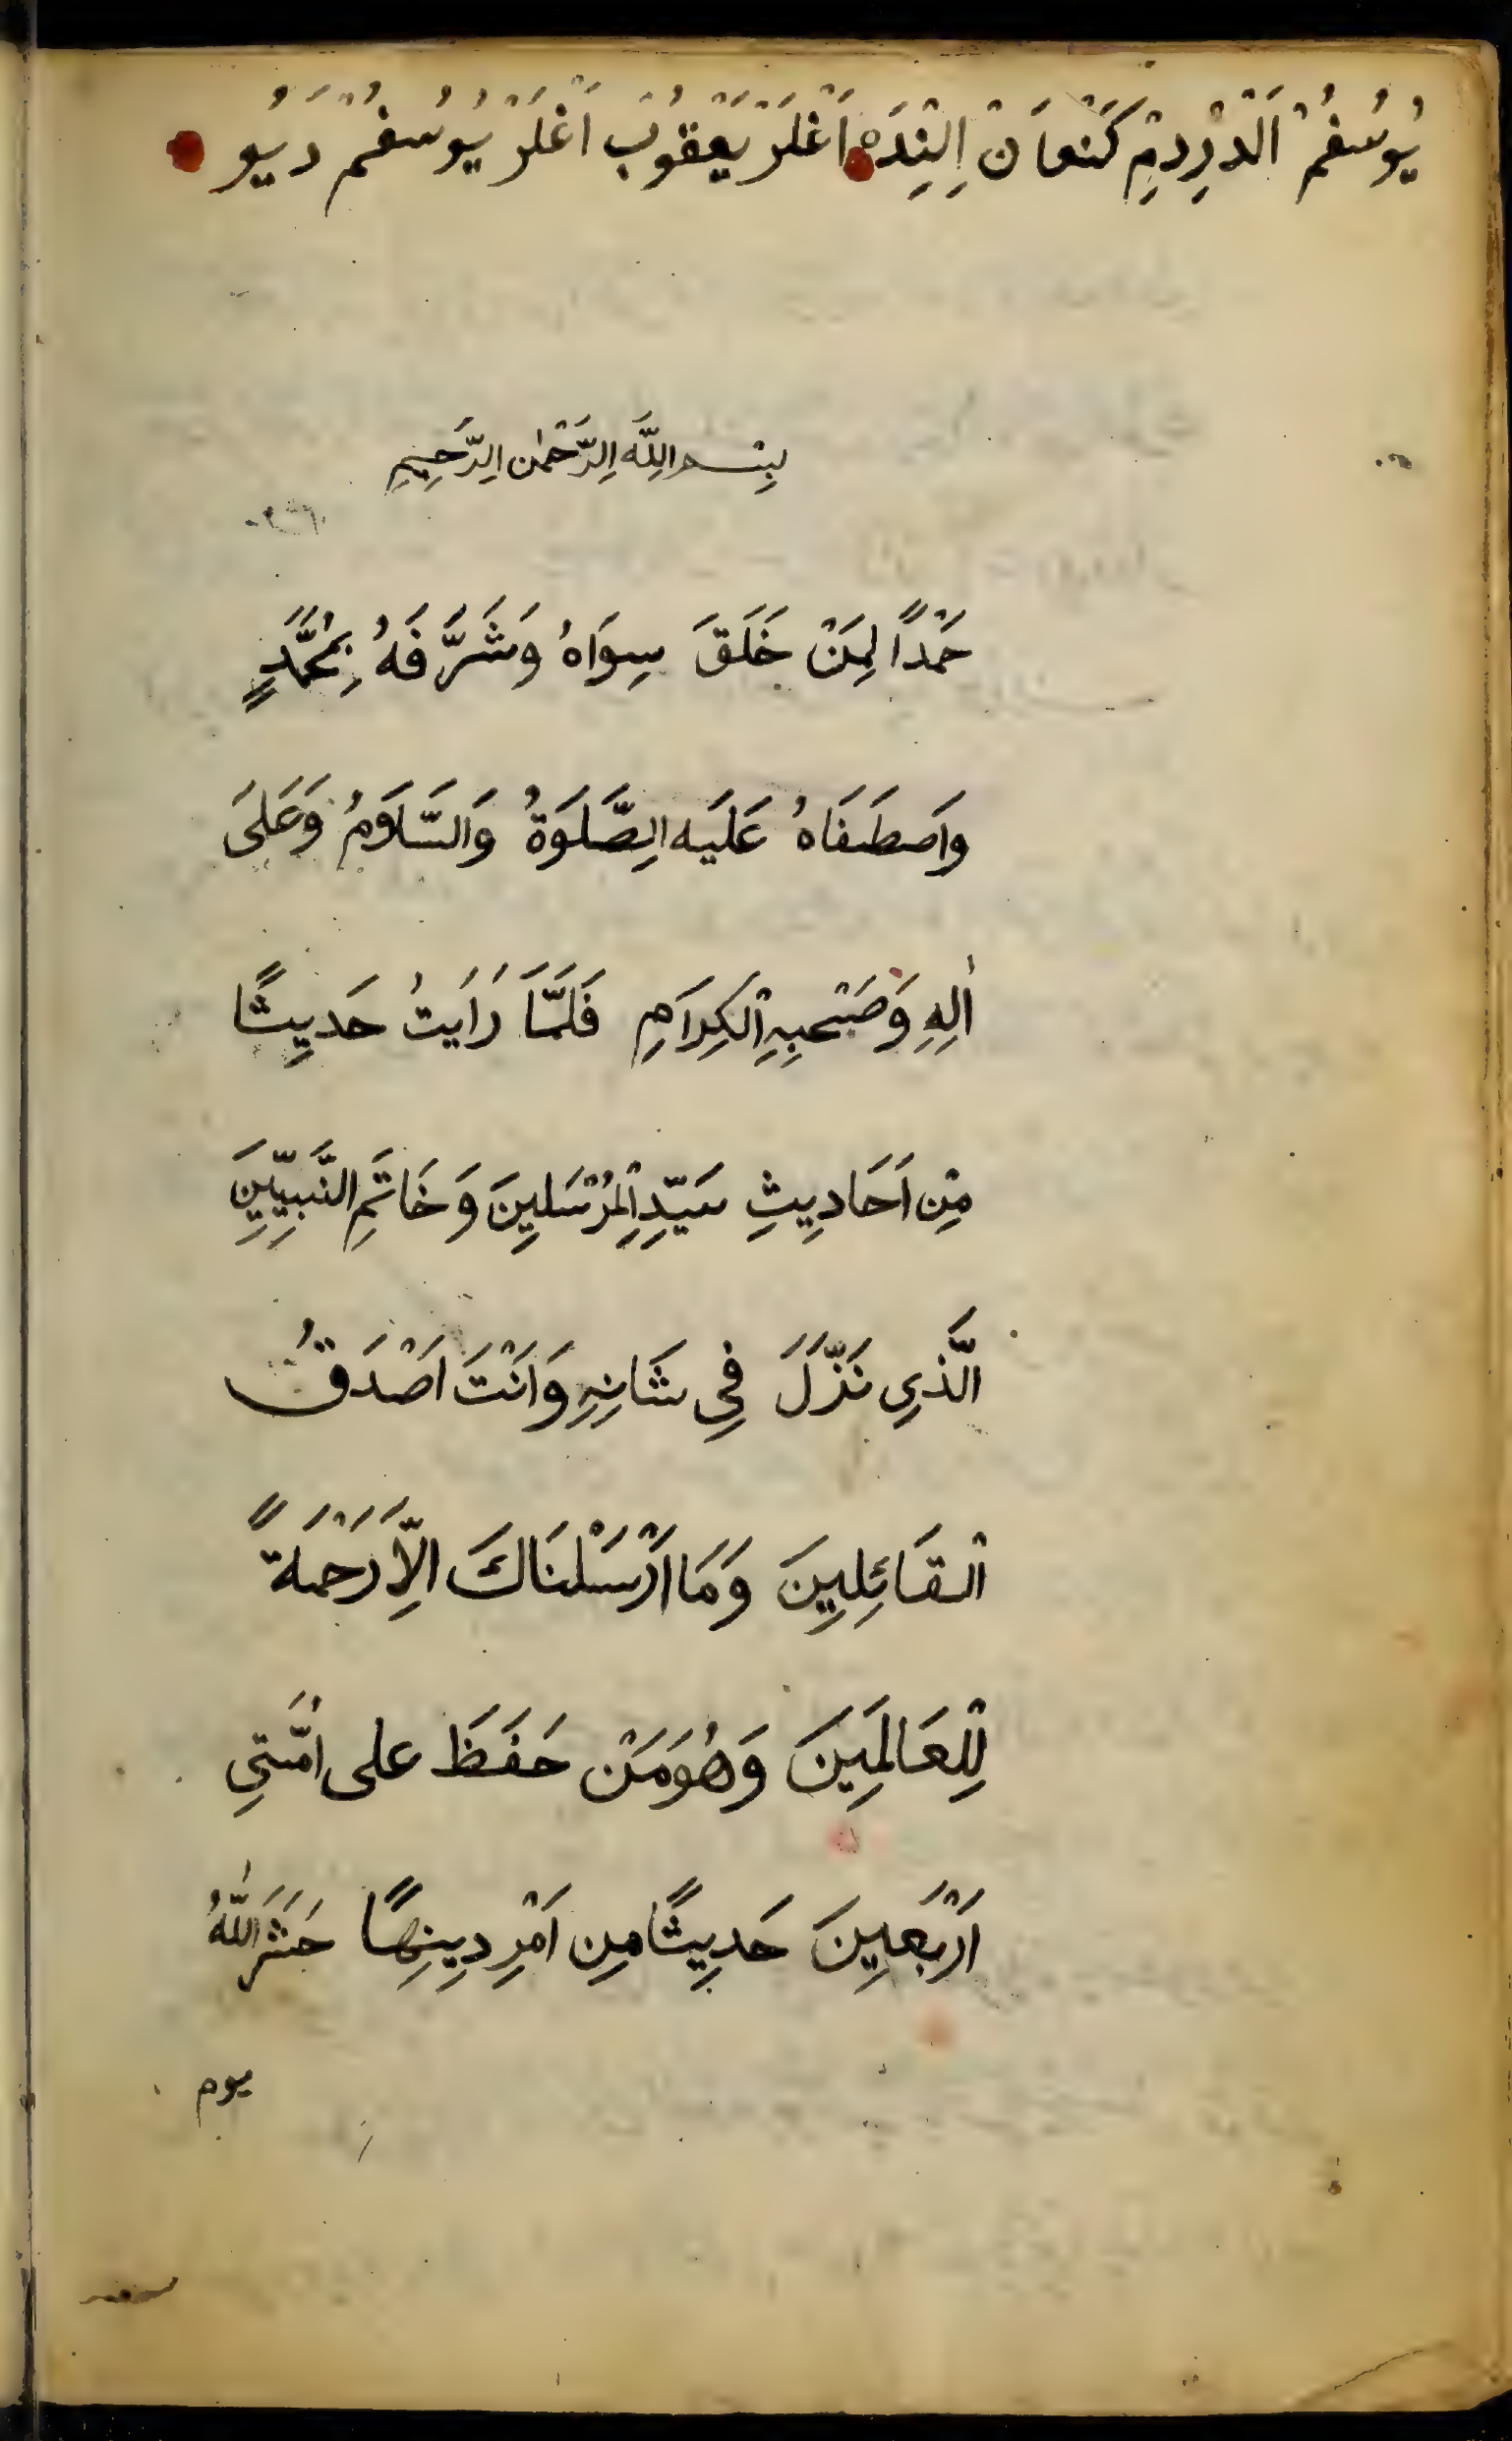 يُوسُفُمْ اَلْدِرْدِمْ كَنْعَانْ اِلِنِدَه اَغْلَرْ يَعْقُوبْ اَغْلَرْ يُوسُفُمْ دَيُو
بِسْمِ اللَّهِ الرَّحْمٰنِ الرَّحِيمِ
حَمْدًا لِمَنْ خَلَقَ سِوَاهُ وَشَرَّفَهُ بِمُحَمَّدٍ
وَاصطَفَاهُ عَلَيه الصَّلَوةُ وَالسَّلاَمُ وَعَلىَ
اٰلِهِ وَصَحْبِهِ الْكِرَامِ فَلَمَّا رَاَيتُ حَديِثًا
مِنْ اَحَادِيثِ سَيِّدِ الْمُرْسَلِينَ وَخَاتَمِ النَّبِيِّينَ
الَّذِي نَزَّلَ فِي شَانِهِ وَاَنْتَ اَصْدَقُ
الْقَائِلِينَ وَمَا اَرْسَلْنَاكَ اِلاَّ رَحْمَةً
لِلْعَالَمِينَ وَهُوَ مَنْ حَفَظَ على اُمَّتِي
اَرْبَعِينَ حَدِيثًا مِن اَمْرِ دِينِهَا حَشَرَ اللّٰهُ
يوم